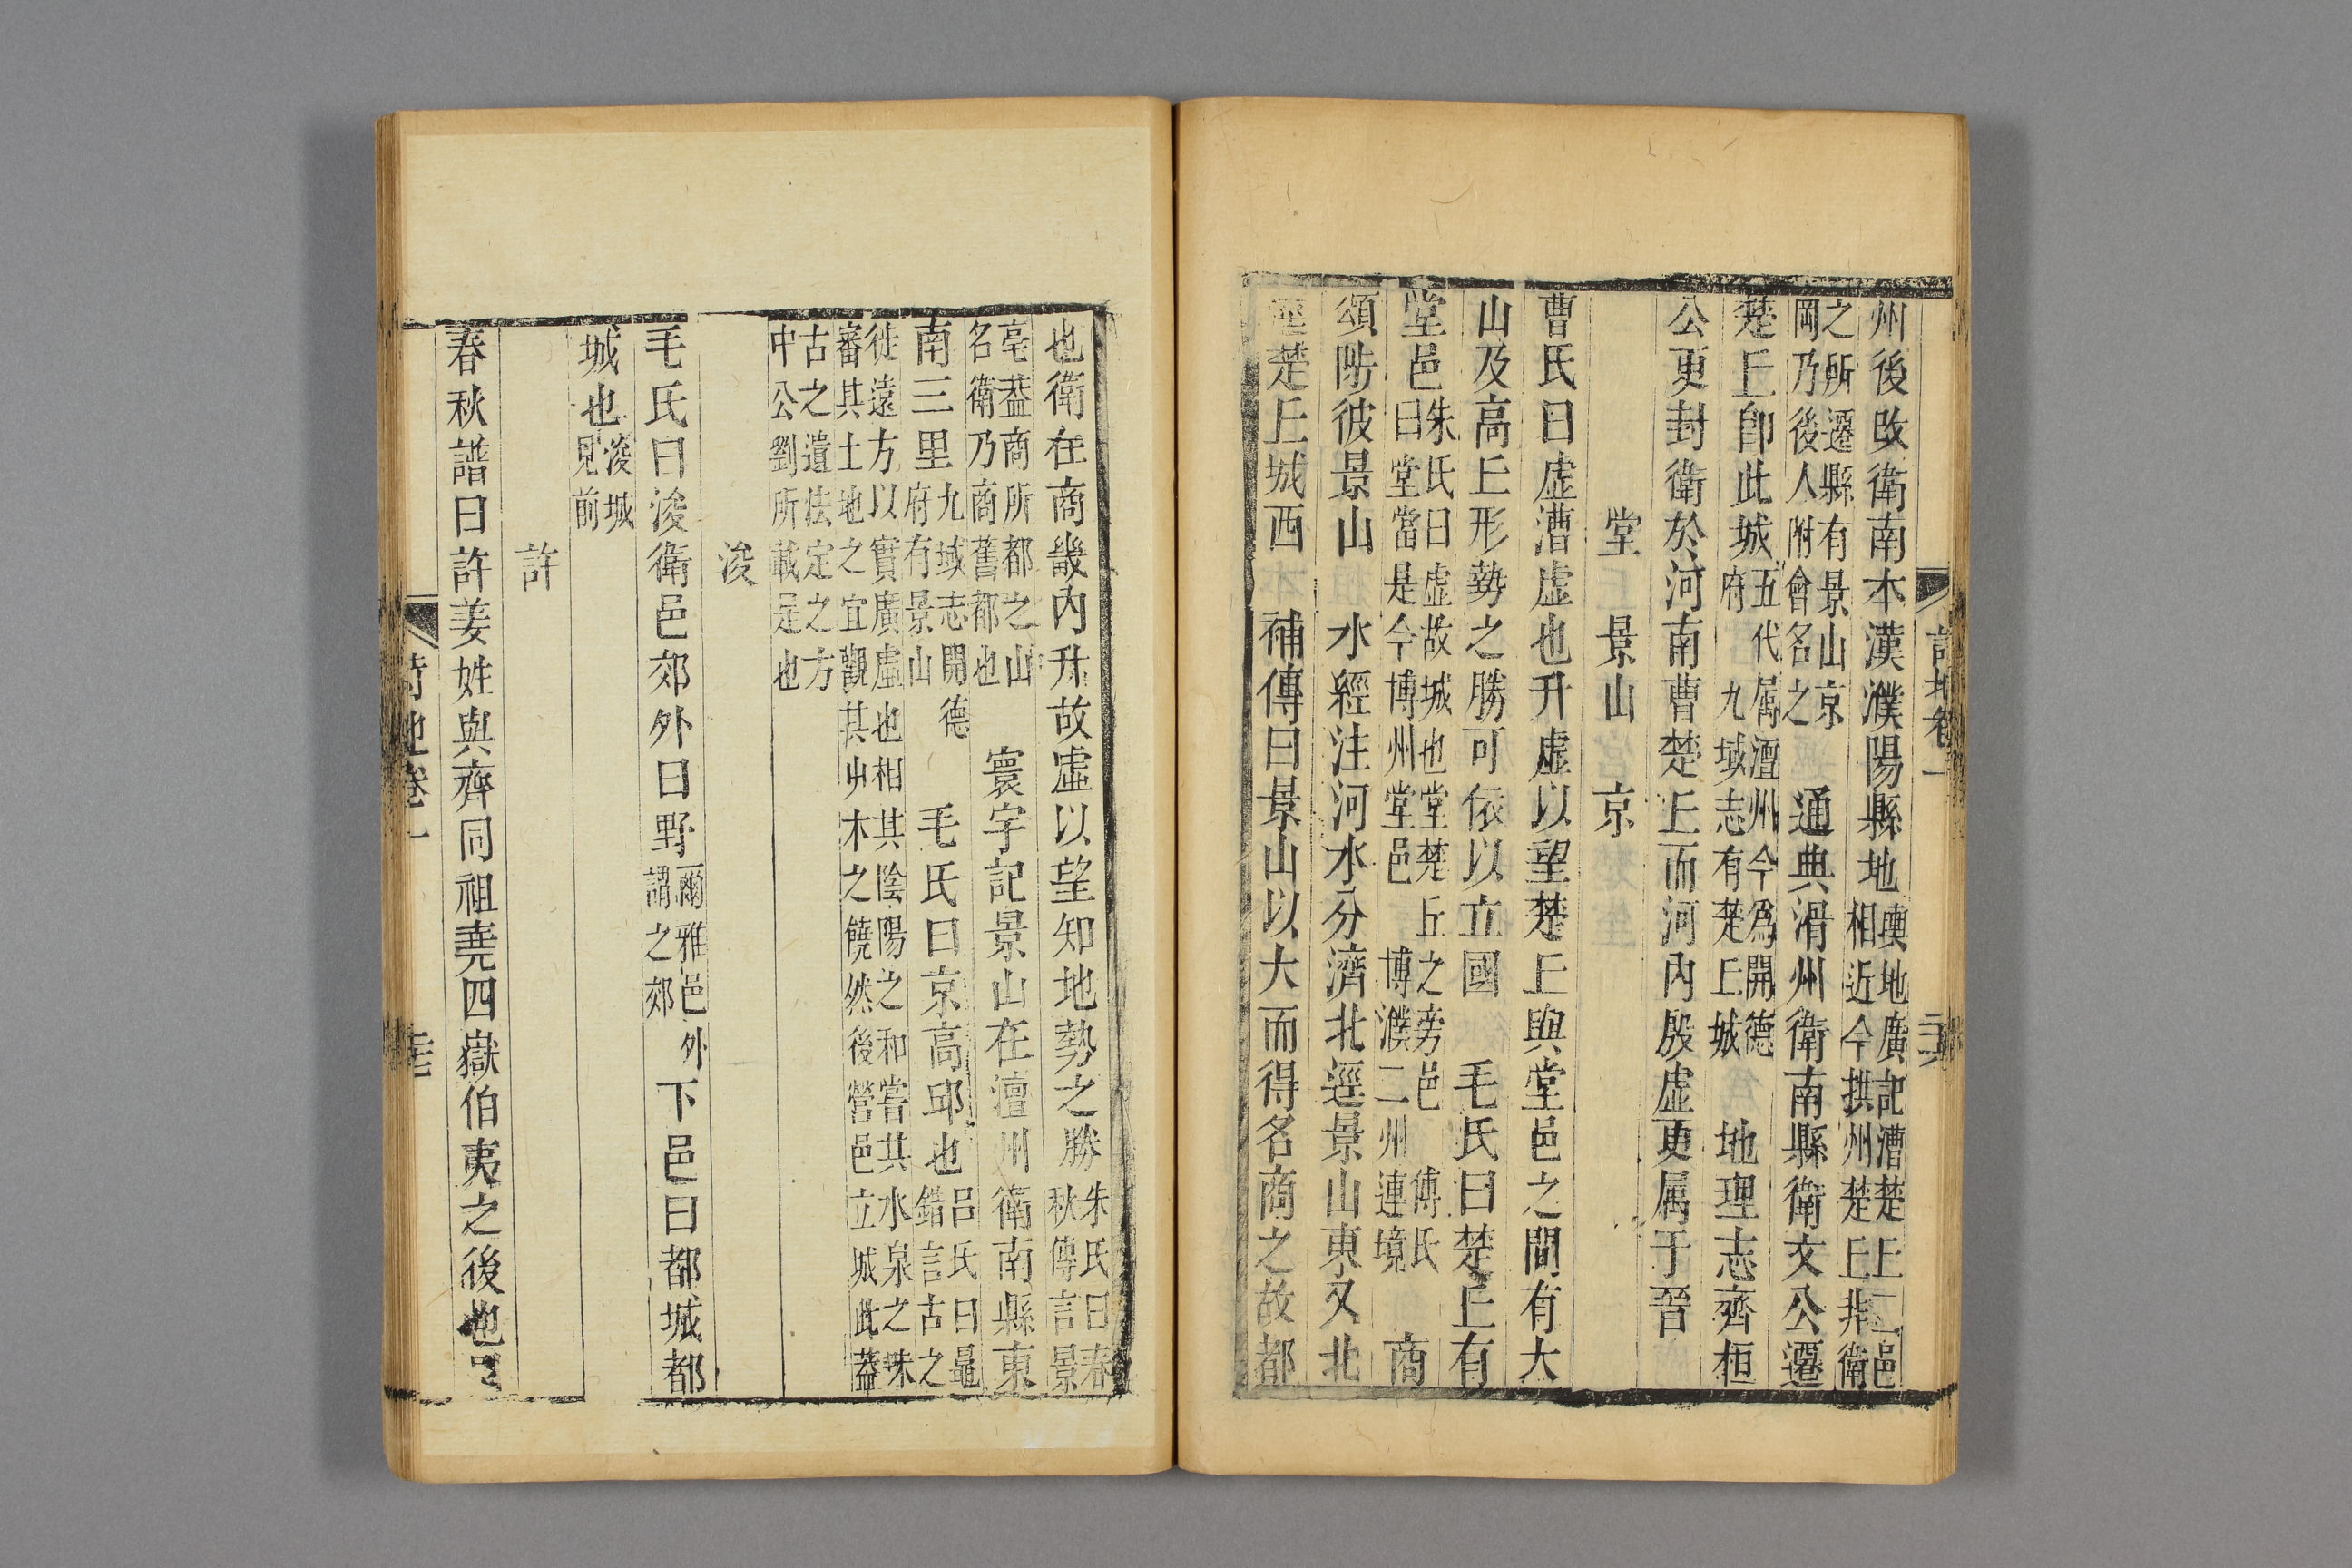 州後改衛南本漢濮陽縣地輿地廣記漕楚丘二邑
相近今拱州楚丘非衛
之所遷縣有景山京
岡乃後人附會名之通典滑州衛南縣衛文公遷
楚丘卽此城五代属澶州今爲開德
府九域志有楚丘城地理志齊桓
公更封衛於河南曹楚丘而河內殷虛更属于晉
堂 景山 京
曹氏曰虛漕虛也升虛以望楚丘與堂邑之間有大
山及高丘形勢之勝可依以立國 毛氏曰楚丘有
堂邑朱氏曰虛故城也堂楚丘之旁邑 傅氏
曰堂當是今博州堂邑 博濮二州連境 商
頌陟彼景山 水經注河水分濟北逕景山東又北
逕楚丘城西 補傳曰景山以大而得名商之故都
詩地卷一
也衛在商畿內升故虛以望知地勢之勝朱氏曰春
秋傳言景
亳葢商所都之山
名衛乃商舊都也 寰宇記景山在澶州衛南縣東
南三里九域志開德
府有景山 毛氏曰京高邱也呂氏曰鼂
錯言古之
徙遠方以實廣虛也相其陰陽之和嘗其水泉之味
審其土地之宜觀其屮木之饒然後營邑立城此葢
古之遺法定之方
中公劉所載是也
浚
毛氏曰浚衛邑郊外曰野爾雅邑外
謂之郊下邑曰都城都
城也浚城
見前
許
春秋譜曰許姜姓與齊同祖堯四嶽伯夷之後也
詩地卷一